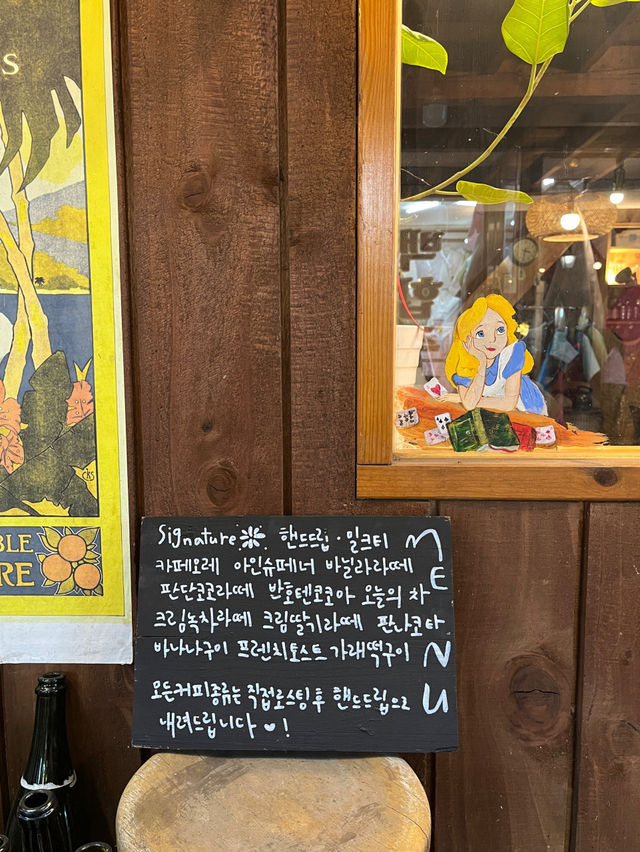 S
BLE
RE
CKS
Signature 핸드드립 · 밀크티
카페오레 아인슈페너 바닐라라떼
판단코코라떼 반호텐코코아 오늘의 차
크림녹차라떼 크림딸기라떼 판나코타
바나나구이 프렌치토스트 가래떡구이
모든커피종류는 직접로스팅후 핸드드립으로
내려드립니다 ♥!
MENU